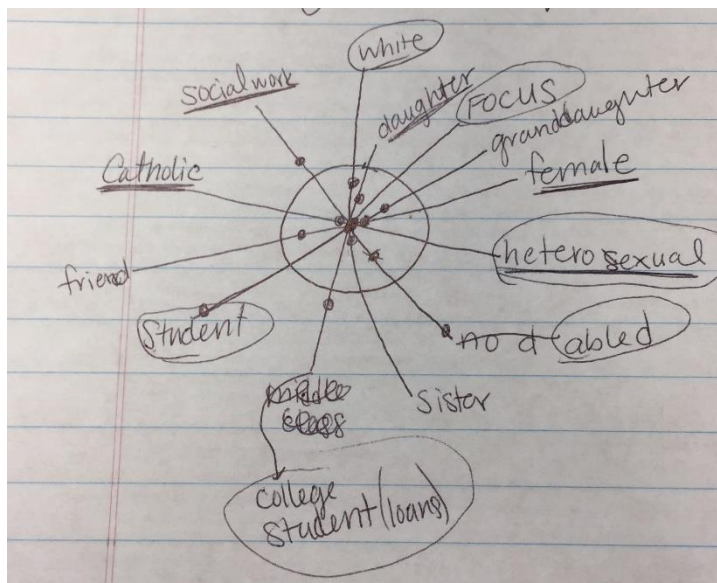 white
social work
daughter
FOCUS
granddaughter
Catholic
female
heterosexual
friend
Student
no d abled
Sister
middle
class
college
student (loans)